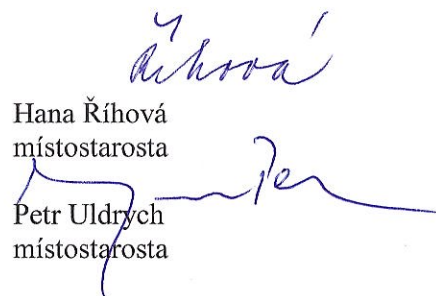 Říhová
Hana Říhová
místostarosta
Petr Uldrych
místostarosta